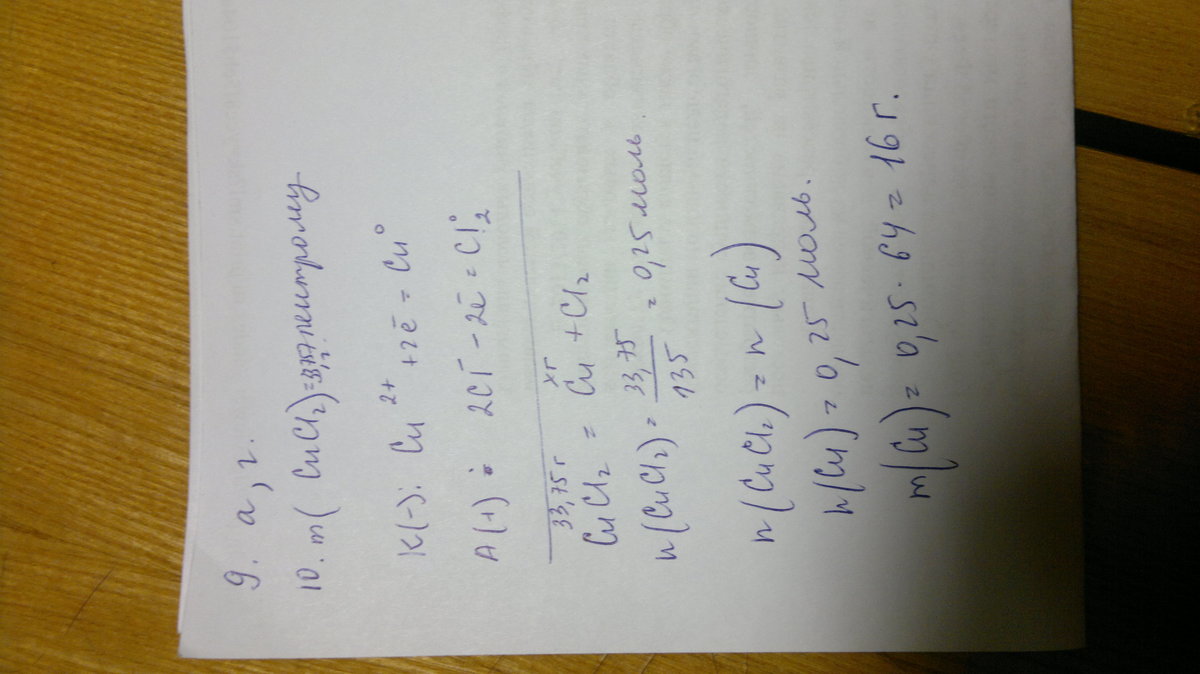 9. а, г.
10. m(CuCl₂) =
K(-): Cu²⁺ + 2ē = Cu⁰
A(+): 2Cl⁻ - 2ē = Cl₂⁰
33,75 г xг
CuCl₂ = Cu + Cl₂
n(CuCl₂) = 33,75/135 = 0,25 моль.
n(CuCl₂) = n(Cu)
n(Cu) = 0,25 моль.
m(Cu) = 0,25 · 64 = 16 г.